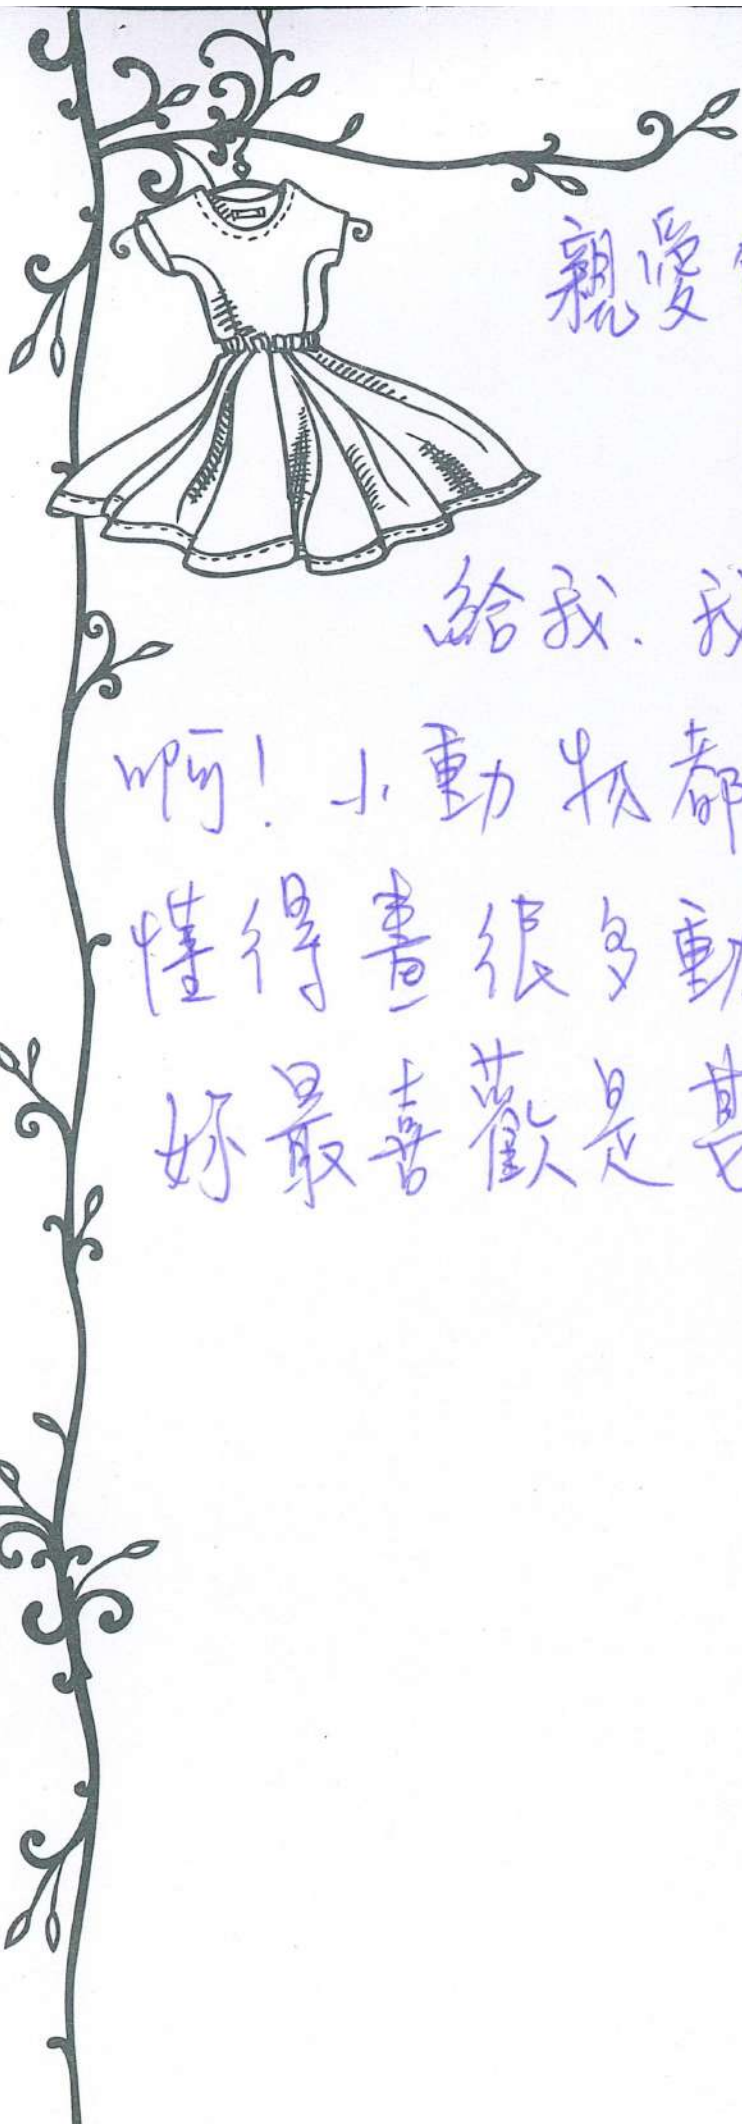 親愛
給我. 我
啊! 小動物都
懂得畫很多動
妳最喜歡是甚